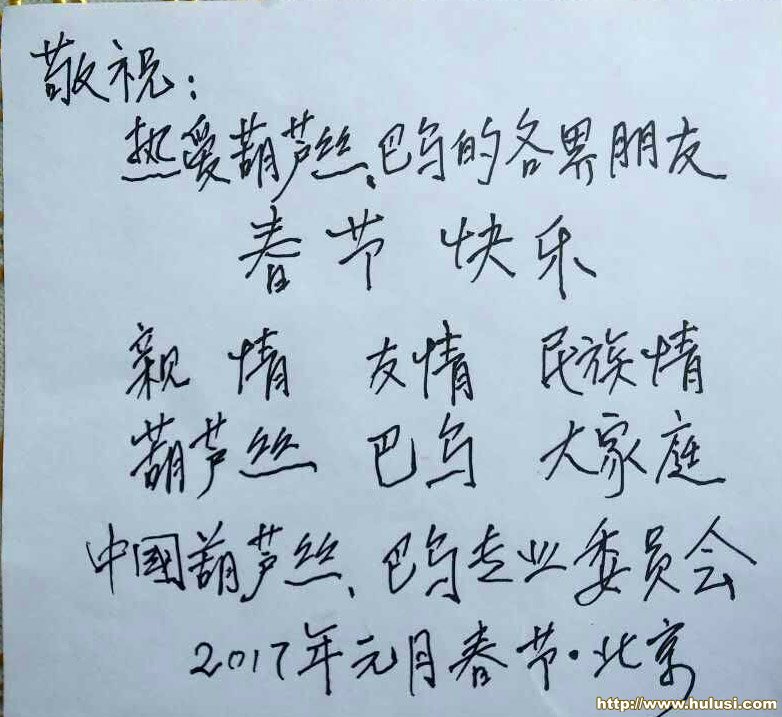 敬祝：
热爱葫芦丝、巴乌的各界朋友
春节 快乐
亲 情 友情 民族情
葫芦丝 巴乌 大家庭
中國葫芦丝、巴乌专业委员会
2017年元月春节·北京
http://www.hulusi.com